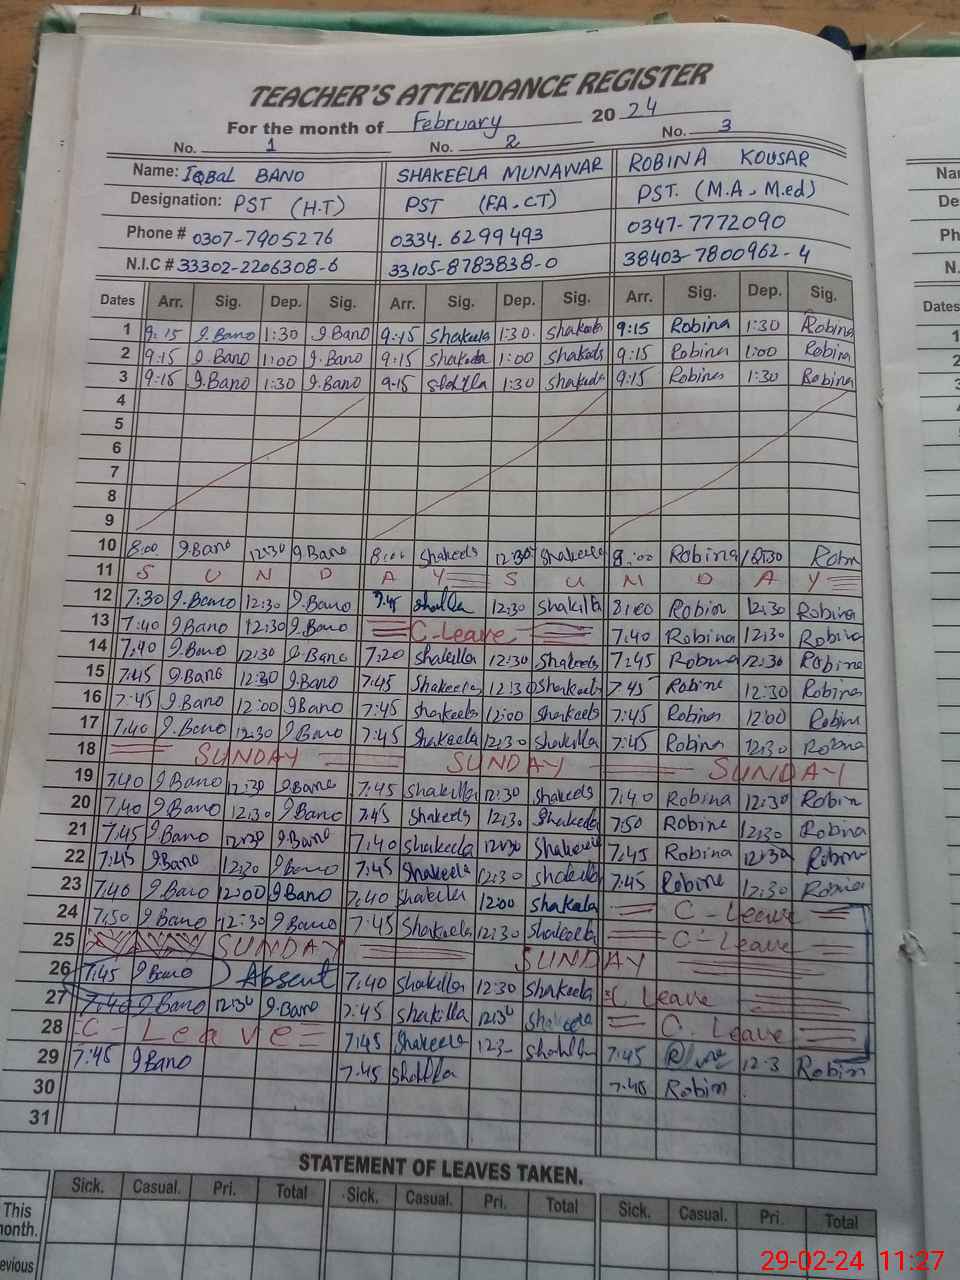 TEACHER'S ATTENDANCE REGISTER
For the month of February 20 24
No. 1 No. 2 No. 3
Name: IQBal BANO SHAKEELA MUNAWAR ROBINA KOUSAR
Designation: PST (H.T) PST (FA.CT) PST. (M.A, M.ed)
Phone # 0307-7905276 0334.6299493 0347-7772090
N.I.C # 33302-2206308-6 33105-8783838-0 38403-7800962-4
Dates Arr. Sig. Dep. Sig. Arr. Sig. Dep. Sig. Arr. Sig. Dep. Sig.
1 9:15 9.Bano 1:30 9.Bano 9:15 Shakeela 1:30 shakeela 9:15 Robina 1:30 Robina
2 9:15 9.Bano 1:00 9.Bano 9:15 1:00 9:15 Robina 1:00 Robina
3 9:15 9.Bano 1:30 9.Bano 9:15 1:30 9:15 Robina 1:30 Robina
4
5
6
7
8
9
10 8:00 9.Bano 12:30 9.Bano 8:00 Shakeela 12:30 Shakeela 8:00 Robina 12:30
11 S U N D A Y S U N D A Y
12 7:30 9.Bano 12:30 9.Bano 7:45 12:30 Shakilla 8:00 Robina 12:30 Robina
13 7:40 9Bano 12:30 9.Bano C-Leave 7:40 Robina 12:30 Robina
14 7:40 9.Bano 12:30 9.Bano 7:20 Shakilla 12:30 Shakeela 7:45 Robina 12:30 Robina
15 7:45 9Bano 12:30 9.Bano 7:45 Shakeela 12:30 Shakeela 7:45 Robine 12:30 Robina
16 7:45 9.Bano 12:00 9Bano 7:45 Shakeela 12:00 Shakeela 7:45 Robina 12:00 Robina
17 7:40 9.Bano 12:30 9.Bano 7:45 Shakeela 12:30 Shakilla 7:45 Robina 12:30 Robina
18 SUNDAY SUNDAY SUNDAY
19 7:40 9Bano 12:30 9Bano 7:45 Shakilla 12:30 Shakeela 7:40 Robina 12:30 Robin
20 7:40 9Bano 12:30 9Bano 7:45 Shakeela 12:30 Shakeela 7:50 Robine 12:30 Robina
21 7:45 9Bano 12:30 9.Bano 7:40 shakeela 12:30 Shakeela 7:45 Robina 12:30 Robina
22 7:45 9Bano 12:30 9Bano 7:45 Shakeela 12:30 shakeela 7:45 Robine 12:30 Robina
23 7:40 9Bano 12:00 9Bano 7:40 Shakeela 12:00 Shakeela C-Leave
24 7:50 9Bano 12:30 9Bano 7:45 Shakeela 12:30 Shakeela C-Leave
25 SUNDAY SUNDAY
26 7:45 9Bano Absent 7:40 Shakilla 12:30 Shakeela C Leave
27 7:40 9Bano 12:30 9.Bano 7:45 Shakilla 12:30 Shakeela C.Leave
28 C-Leave 7:45 Shakeela 12:3 7:45 12:3 Robin
29 7:45 9Bano 7:45 7:45 Robin
30
31
STATEMENT OF LEAVES TAKEN.
Sick. Casual. Pri. Total Sick. Casual. Pri. Total Sick. Casual. Pri. Total
This month.
evious
Dates
29-02-24 11:27